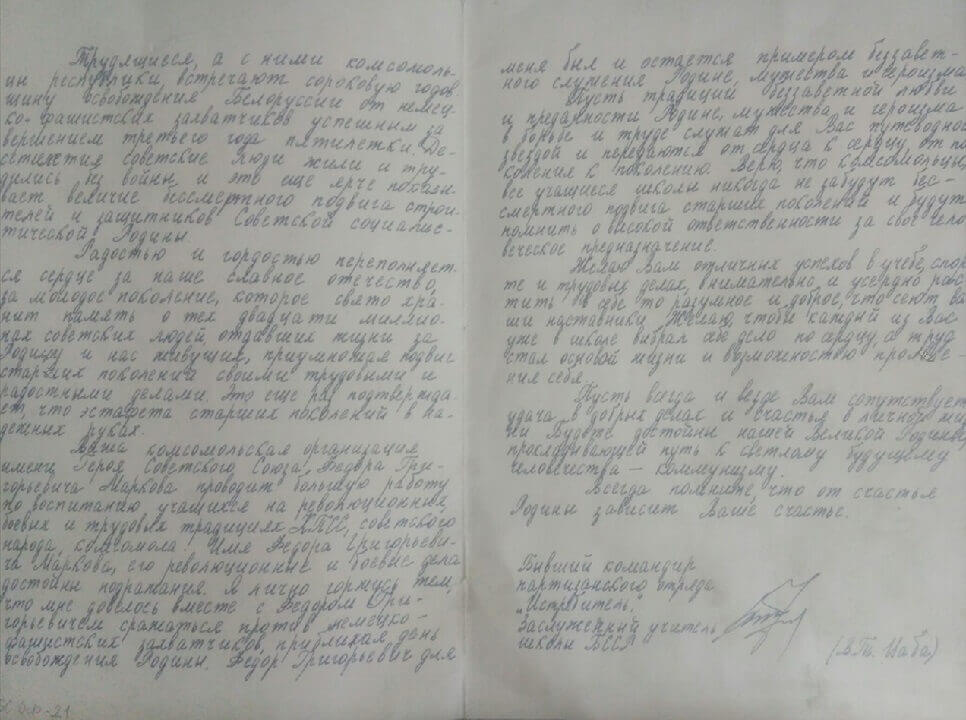 Трудящиеся, а с ними комсомоль-
цы республики, встречают сороковую годов
щину освобождения Белоруссии от немец-
ко-фашистских захватчиков успешным за
вершением третьего года пятилетки. Де-
сятилетия советские люди жили и тру-
дились без войны и это еще ярче показы
вает величие бессмертного подвига строи-
телей и защитников Советской социалис-
тической Родины.
Радостью и гордостью переполняет-
ся сердце за наше славное отечество,
за молодое поколение, которое свято хра-
нит память о тех двадцати миллио-
нах советских людей, отдавших жизни за
Родину и нас живущих, приумножая подвиг
старших поколений своими трудовыми и
радостными делами. Это еще раз подтвержда-
ет, что эстафета старших поколений в на-
дежных руках.
Ваша комсомольская организация
имени Героя Советского Союза Федора Гри-
горьевича Маркова проводит большую работу
по воспитанию учащихся на революционных,
боевых и трудовых традициях КПСС, советского
народа, комсомола. Имя Федора Григорьеви-
ча Маркова, его революционные и боевые дела
достойны подражания. Я лично горжусь тем,
что мне довелось вместе с Федором Гри-
горьевичем сражаться против немецко-
фашистских захватчиков, приближая день
освобождения Родины. Федор Григорьевич для
меня был и остается примером беззавет-
ного служения Родине, мужества и героизма
Пусть традиции беззаветной любви
и преданности Родине, мужества и героизма
в борьбе и труде служат для Вас путеводной
звездой и передаются от сердца к сердцу, от по
коления к поколению. Верю, что комсомольцы,
все учащиеся школы никогда не забудут бес-
смертного подвига старших поколений и будут
помнить о высокой ответственности за свое чело
веческое предназначение.
Желаю Вам отличных успехов в учебе, спор
те и трудовых делах, внимательно и усердно рас
тить в себе то разумное и доброе, что сеют ва
ши наставники. Желаю, чтобы каждый из Вас
уже в школе выбрал бы дело по сердцу, а труд
стал основой жизни и возможностью проявле-
ния себя.
Пусть всегда и везде Вам сопутствует
удача в добрых делах и счастье в личной жиз
ни. Будьте достойны нашей Великой Родины,
прокладывающей путь к светлому будущему
человечества – коммунизму.
Всегда помните, что от счастья
Родины зависит Ваше счастье.
Бывший командир
партизанского отряда
"Истребитель",
Заслуженный учитель
школы БССР